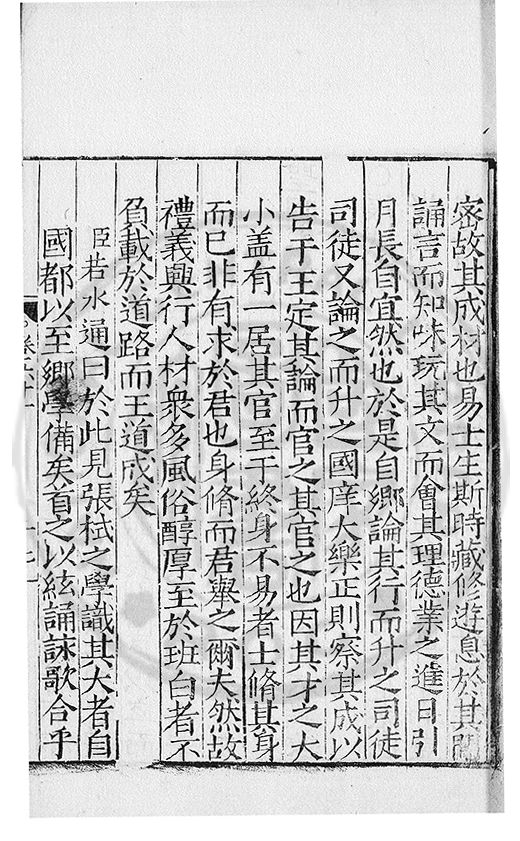 密故其成材也易士生斯時藏修遊息於其間
誦言而知味玩其文而會其理德業之進日引
月長自宜然也於是自鄉論其行而升之司徒
司徒又論之而升之國庠大樂正則察其成以
告于王定其論而官之其官之也因其才之大
小盖有一居其官至于終身不易者士脩其身
而已非有求於君也身脩而君舉之爾夫然故
禮義興行人材衆多風俗醇厚至於班白者不
負載於道路而王道成矣
臣若水通曰於此見張栻之學識其大者自
國都以至鄉學備矣百之以絃誦詠歌合乎